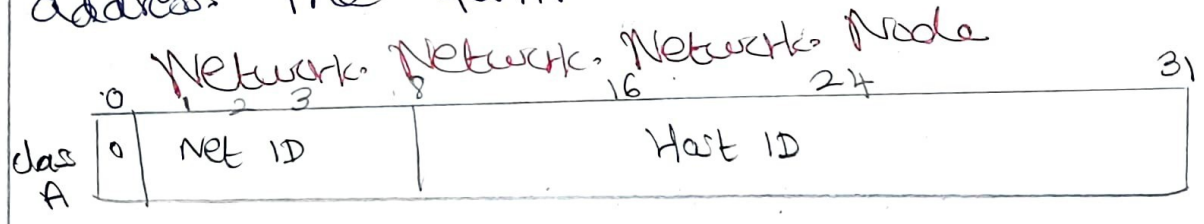 Network. Network. Network. Node
0 1 2 3 8 16 24 31
class 0 Net ID Host ID
A